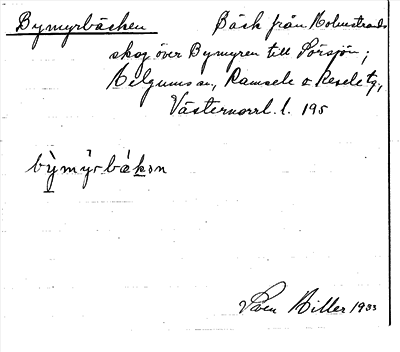 Bymyrbäcken Bäck från Holmstrands
skog över Bymyren till Försjön;
Helgums sn, Ramsele o Resele tg,
Västernorrl. l. 195
bỳmy̆rbákən
Sven Hiller 1933